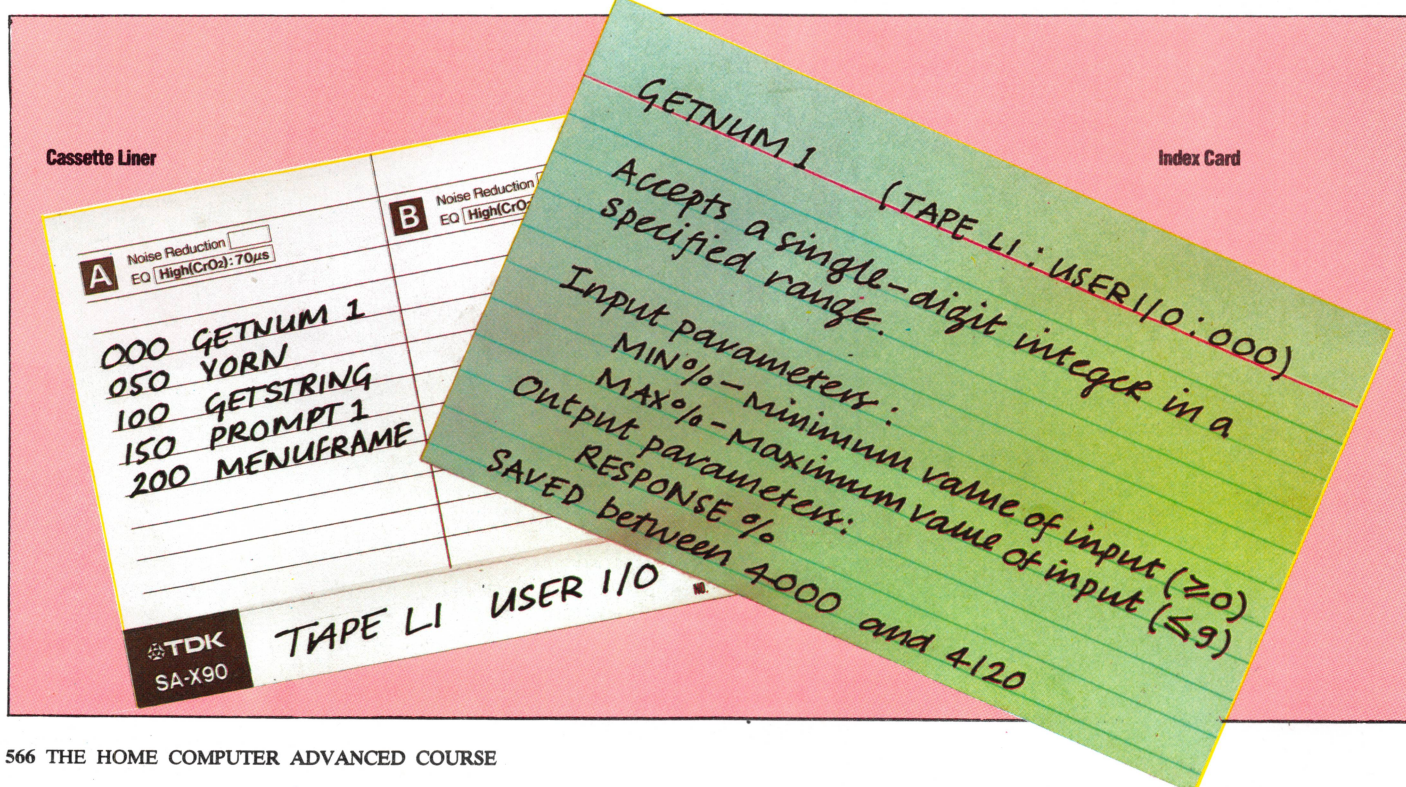 Cassette Liner
A
Noise Reduction
EQ High(CrO2): 70µs
B
Noise Reduction
EQ High(CrO2
000 GETNUM 1
050 YORN
100 GETSTRING
150 PROMPT 1
200 MENUFRAME
TDK
SA-X90
TAPE LI USER I/O
NO.
Index Card
GETNUM 1 (TAPE LI: USER I/O: 000)
Accepts a single-digit integer in a
specified range.
Input parameters:
MIN% - Minimum value of input (≥0)
MAX% - Maximum value of input (≤9)
Output parameters:
RESPONSE %
SAVED between 4000 and 4120
566 THE HOME COMPUTER ADVANCED COURSE